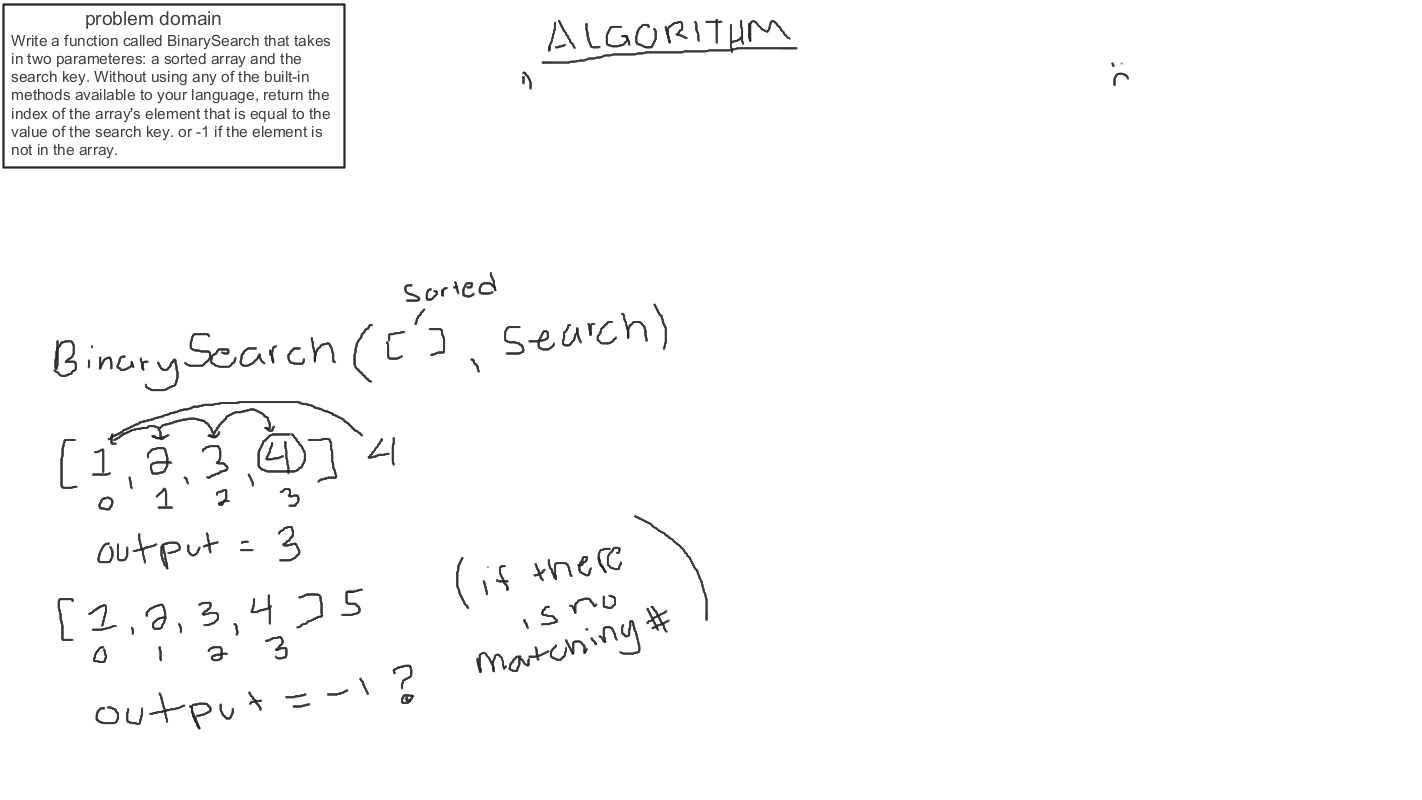 problem domain
Write a function called BinarySearch that takes
in two parameteres: a sorted array and the
search key. Without using any of the built-in
methods available to your language, return the
index of the array's element that is equal to the
value of the search key. or -1 if the element is
not in the array.
ALGORITHM
sorted
BinarySearch([ ], search)
[1, 2, 3, 4] 4
0 1 2 3
output = 3
[1, 2, 3, 4] 5
0 1 2 3
output = -1 ?
(if there
is no
matching #)